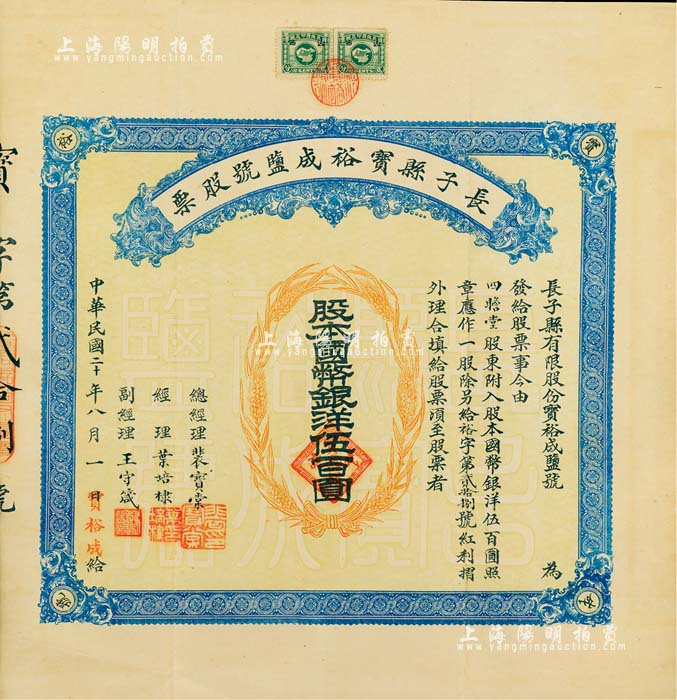 上海陽明拍賣
www.yangmingauction.com
長子縣寳裕成鹽號股票
長子縣有限股份寳裕成鹽號 為
發給股票事今由
四箴堂股東附入股本國幣銀洋伍百圓照
章應作一股除另給裕字第貳拾捌號紅利摺
外理合填給股票須至股票者
股本國幣銀洋伍百圓
總經理 裴寳棠
經理 葉培棣
副經理 王守箴
中華民國二十年八月一日寳裕成給
寳字第貳拾捌號
上海陽明拍賣
www.yangmingauction.com
上海陽明拍賣
www.yangmingauction.com